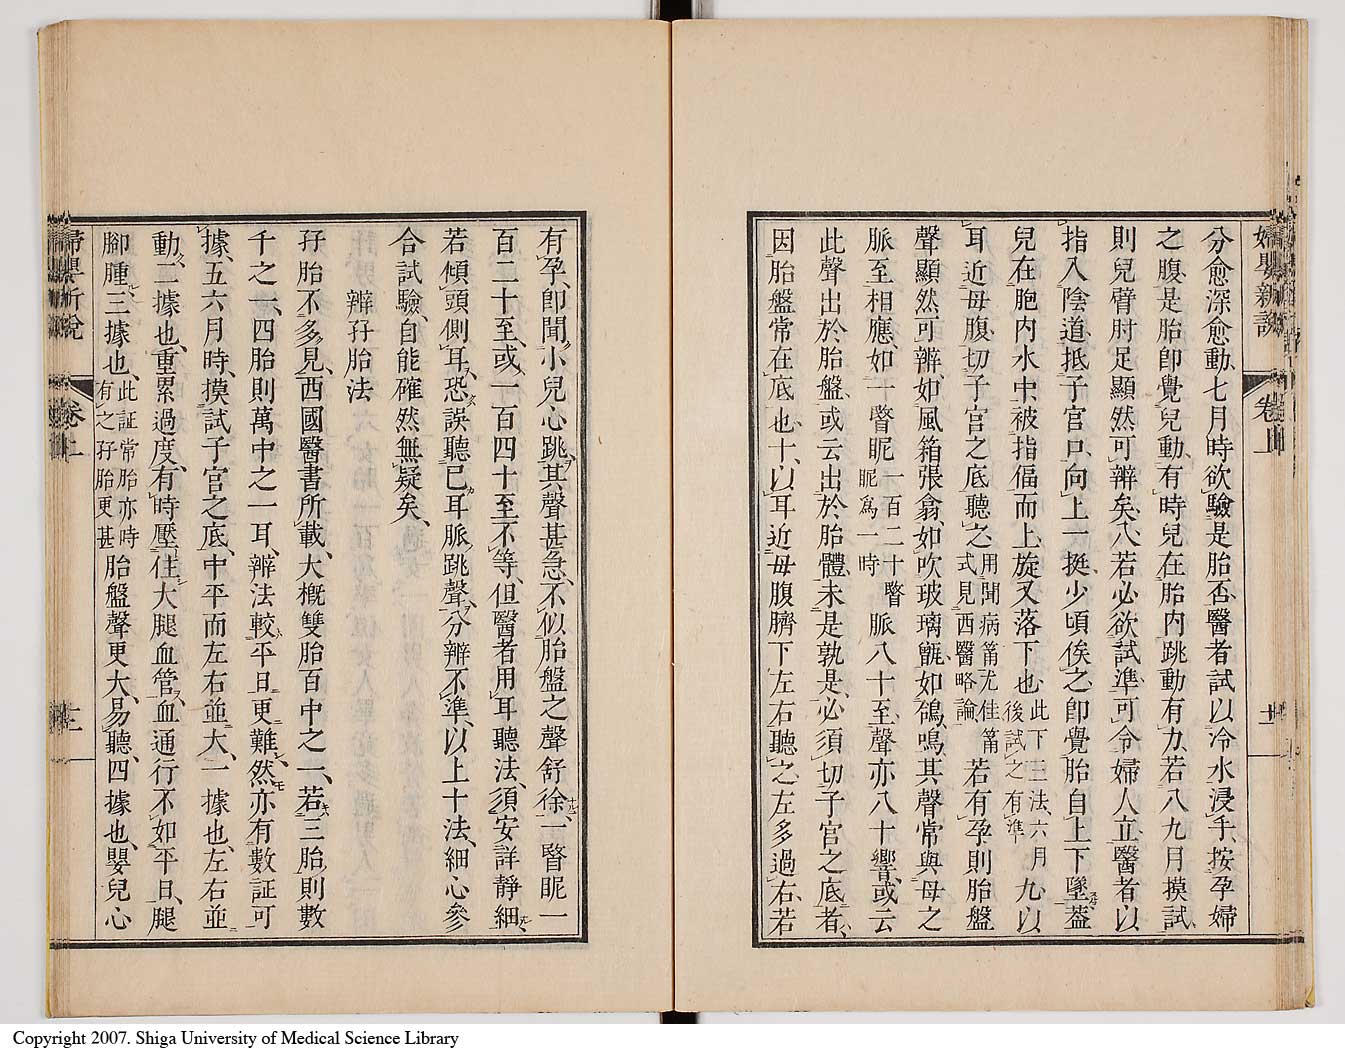 婦嬰新說
卷上
十一
分愈深愈動、七月時欲驗是胎否、醫者試以冷水浸手、按孕婦
之腹、是胎卽覺兒動、有時兒在胎內跳動有力、若八九月摸試、
則兒臂肘足顯然可辨矣、八若必欲試準、可令婦人立、醫者以
指入陰道、抵子宮口、向上一挺、少頃俟之、卽覺胎自上下墜、蓋
兒在胞內水中、被指偪而上、旋又落下也、此下三法六月後試之有準九以
耳近母腹、切子宮之底聽之、用聞病筩尤佳筩式見西醫略論若有孕則胎盤
聲顯然可辨、如風箱張翕、如吹玻璃甁、如鴿鳴、其聲常與母之
脈至相應、如一瞀眤一百二十瞀眤爲一時脈八十至、聲亦八十響、或云
此聲出於胎盤、或云出於胎體、未是孰是、必須切子宮之底者、
因胎盤常在底也、十、以耳近母腹臍下左右聽之、左多過右、若
有孕、卽聞小兒心跳、其聲甚急、不似胎盤之聲舒徐、一瞀眤一
百二十至、或一百四十至不等、但醫者用耳聽法、須安詳靜細、
若傾頭側耳、恐誤聽已耳脈跳聲、分辨不準、以上十法、細心參
合試驗、自能確然無疑矣、
辨孖胎法
孖胎不多見、西國醫書所載、大槪雙胎百中之一、若三胎則數
千之一、四胎則萬中之一耳、辨法較平日更難、然亦有數証可
據、五六月時、摸試子宮之底、中平而左右並大、一據也、左右並
動、二據也、重累過度、有時壓住大腿血管、血通行不如平日、腿
腳腫、三據也、此証常胎亦時有之孖胎更甚胎盤聲更大、易聽、四據也、嬰兒心
婦嬰新說
卷上